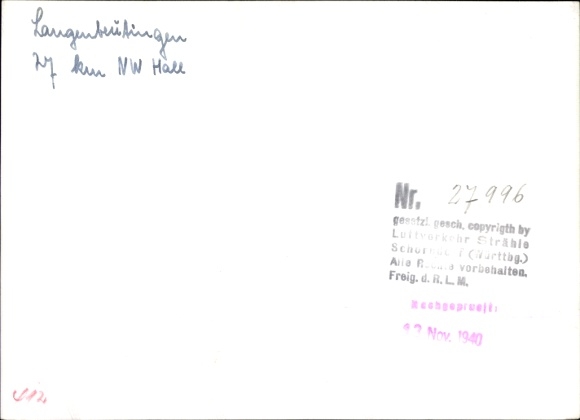 Langenbeutingen
27 km NW Hall
Nr. 27996
gesetzl. gesch. copyrigth by
Luftverkehr Strähle
Schorndorf (Württbg.)
Alle Rechte vorbehalten.
Freig. d. R. L. M.
Nachgeprüft:
Nov. 1940